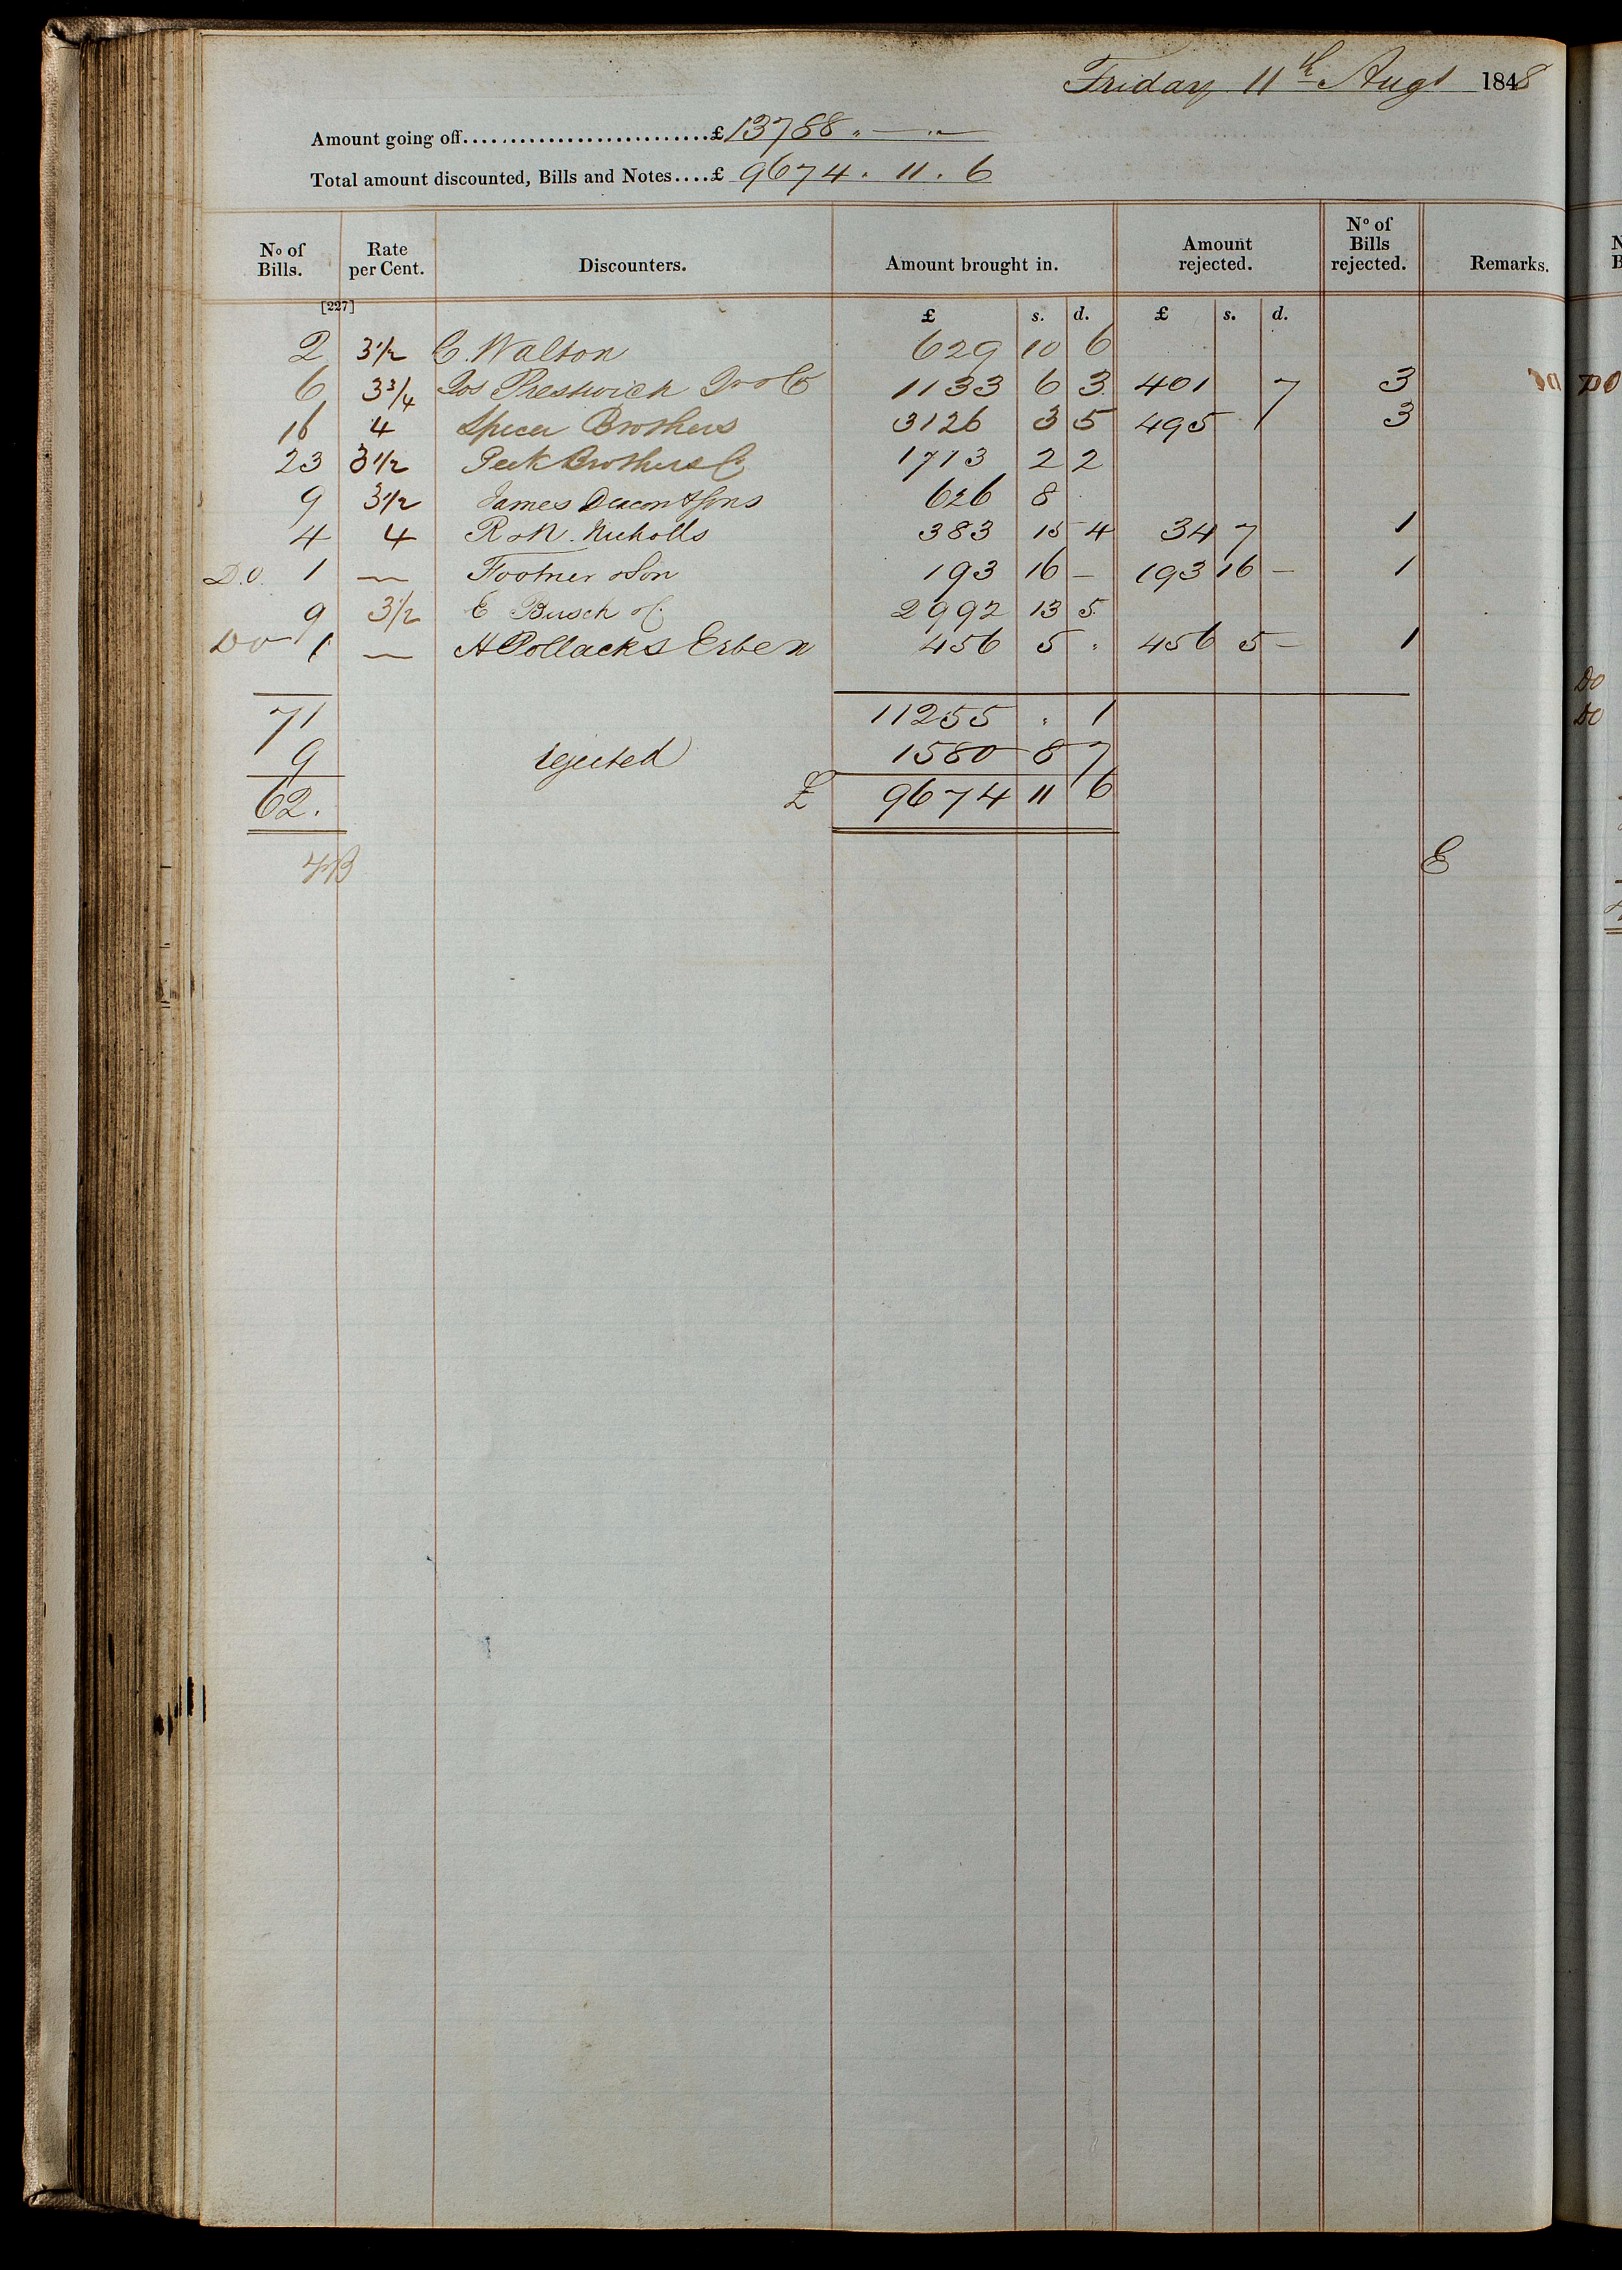 Friday 11th Augt 1848
Amount going off.........................£ 13788 " — " —
Total amount discounted, Bills and Notes....£ 9674 . 11 . 6
No of Bills. Rate per Cent. Discounters. Amount brought in. Amount rejected. No of Bills rejected. Remarks.
[227] £ s. d. £ s. d.
2 3 1/2 C. Walton 629 10 6
6 3 3/4 Jos Prestwich Jr & Co 1133 6 3 401 7 3
16 4 Spicer Brothers 3126 3 5 495 3
23 3 1/2 Peek Brothers & Co 1713 2 2
9 3 1/2 James Deacon & Sons 626 8
4 4 R & N. Nicholls 383 15 4 34 7 1
D.O. 1 — Footner & Son 193 16 — 193 16 — 1
9 3 1/2 E Busch & Co 2992 13 5
DO 1 — H Pollacks Erben 456 5 " 456 5 — 1
71 11255 " 1
9 rejected 1580 8 7
62. £ 9674 11 6
E
DO
DO
DO